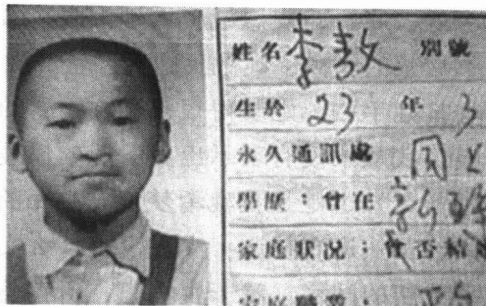 姓名 李敖 別號
生於 23 年 3
永久通訊處 同上
學歷：曾在
家庭狀況：曾否結
家庭職業：